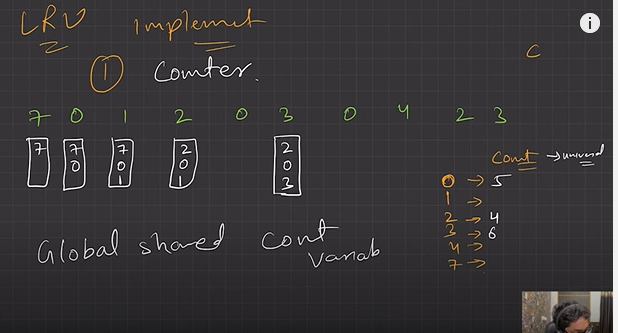 LRU Implement
① Counter.
C
7 0 1 2 0 3 0 4 2 3
7 7 7 2 2
0 0 0 0
1 1 3
Count → universal
0 → 5
1 →
2 → 4
3 → 6
4 →
7 →
Global shared Cont
Variab